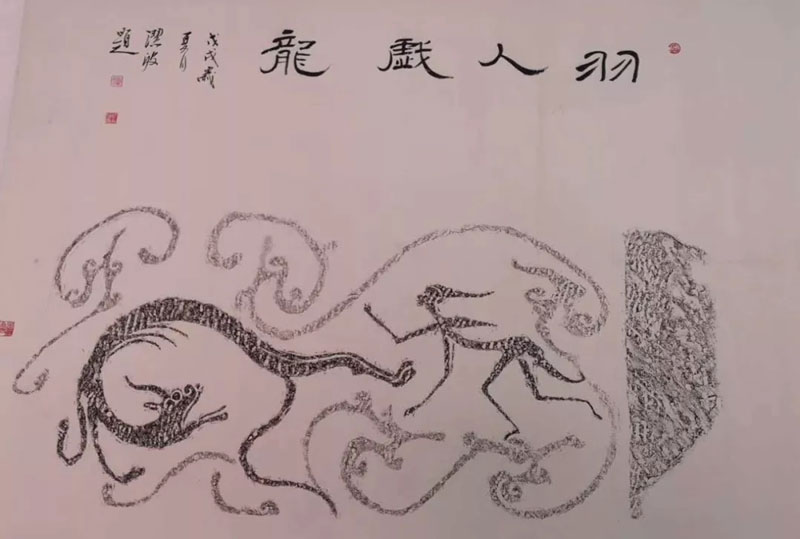 羽人戲龍
戊戌歲
夏月
題